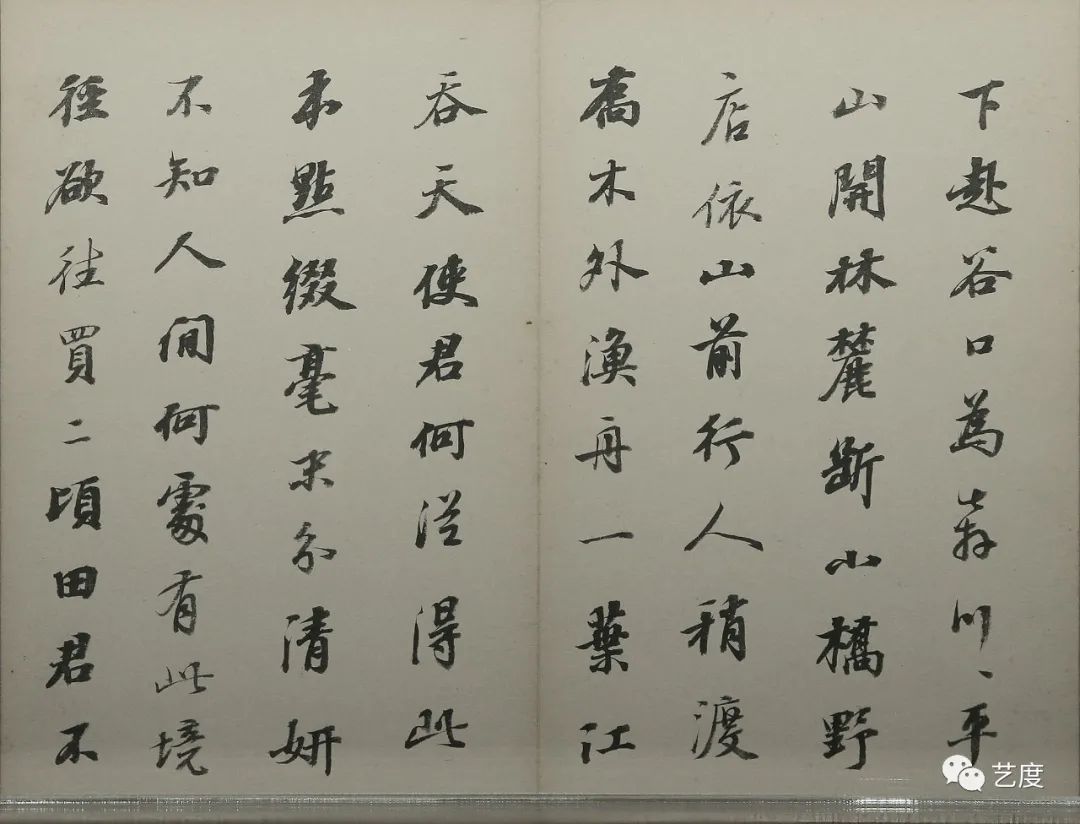 下赴谷口為奔川、平
山開林麓斷小橋野
店依山前行人稍渡
喬木外漁舟一葉江
吞天使君何從得此
本點綴毫末分清妍
不知人間何處有此境
徑欲往買二頃田君不
艺度